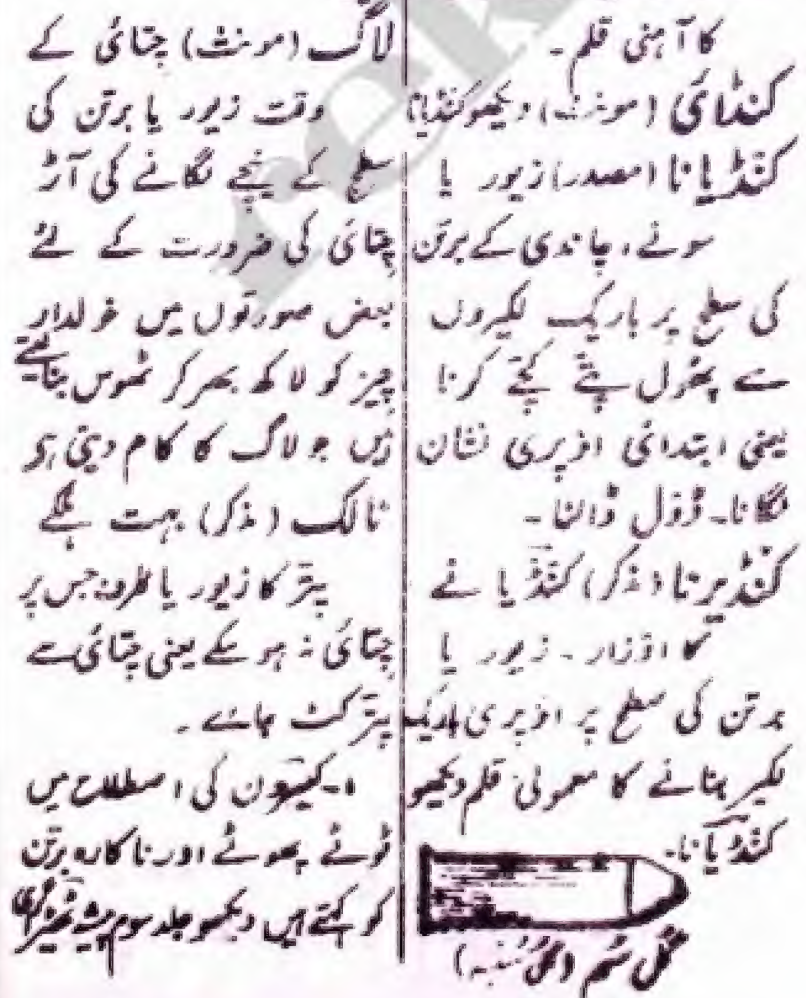 کا آہنی قلم۔
کنڈائی (مونث) دیکھو کنڈیانا
کنڈیانا (مصدر) زیور یا
سونے، چاندی کے برتن
کی سطح پر باریک لکیروں
سے پھول پتے کچے کرنا
یعنی ابتدائی اوپری نشان
لگانا۔ ڈول ڈالنا۔
کنڈیرنا (مذکر) کنڈیانے
کا اوزار۔ زیور یا
برتن کی سطح پر اوپری باریک
لکیر بنانے کا معمولی قلم دیکھو
کنڈیانا۔
گل سم (گل سنبہ)
لاگ (مونث) چتائی کے
وقت زیور یا برتن کی
سطح کے نیچے لگانے کی آڑ
چتائی کی ضرورت کے لئے
بعض صورتوں میں خولدار
چیز کو لاکھ بھر کر ٹھوس بنالیتے
ہیں جو لاگ کا کام دیتی ہو
نالک (مذکر) بہت ہلکے
پتر کا زیور یا ظرف جس پر
چتائی نہ ہو سکے یعنی چتائی سے
پتر کٹ جائے۔
۱۔ کی اصطلاح میں
ٹوٹے پھوٹے اور ناکارہ برتن
کو کہتے ہیں دیکھو جلد سوم پیشہ